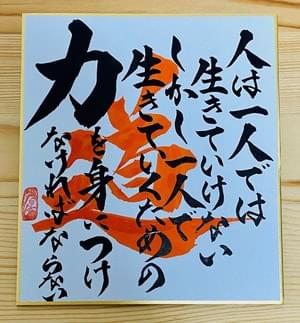 人は一人では
生きていけない
しかし一人で
生きていくための
力を身につけ
なければならない